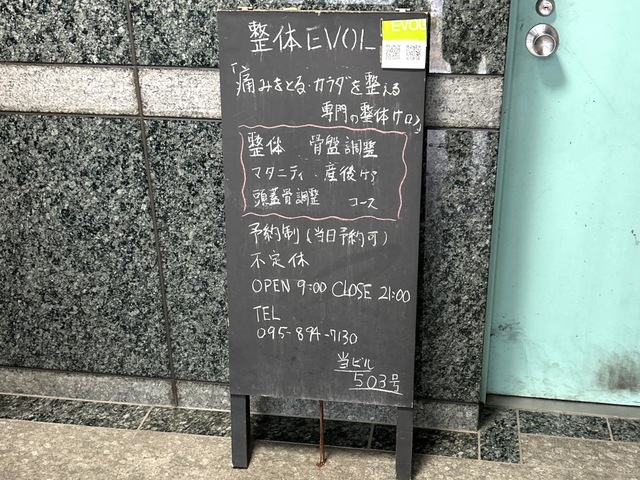 整体 EVOL
EVOL
「痛みをとる・カラダを整える
専門の整体サロン」
整体 骨盤調整
マタニティ・産後ケア
頭蓋骨調整 コース
予約制(当日予約可)
不定休
OPEN 9:00 CLOSE 21:00
TEL
095-894-7130
当ビル
503号